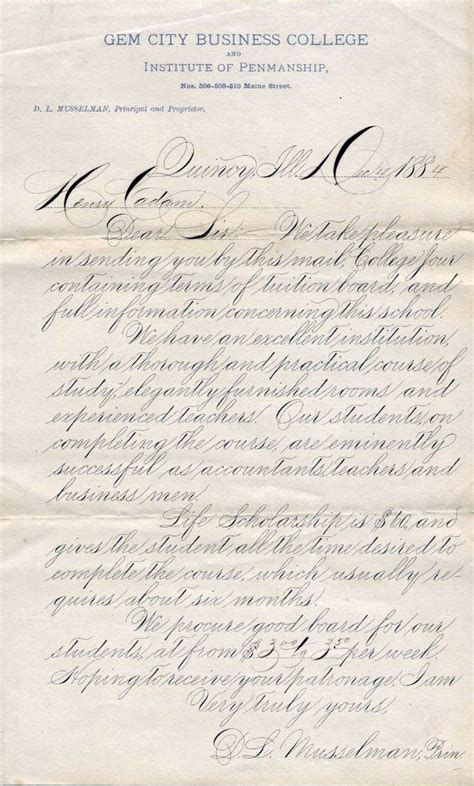 GEM CITY BUSINESS COLLEGE
AND
INSTITUTE OF PENMANSHIP,
Nos. 506-508-510 Maine Street.
D. L. MUSSELMAN, Principal and Proprietor.
Quincy, Ill. 1884
Henry Cadam
Dear Sir:— We take pleasure
in sending you by this mail, College Jour
containing terms of tuition board, and
full information concerning this school.
We have an excellent institution,
with a thorough and practical course of
study, elegantly furnished rooms and
experienced teachers. Our students, on
completing the course, are eminently
successful as accountants, teachers and
business men.
Life Scholarship is $60, and
gives the student all the time desired to
complete the course, which usually re-
quires about six months.
We procure good board for our
students, at from $3.00 to 3.50 per week.
Hoping to receive your patronage, I am
Very truly yours,
D. L. Musselman, Prin.